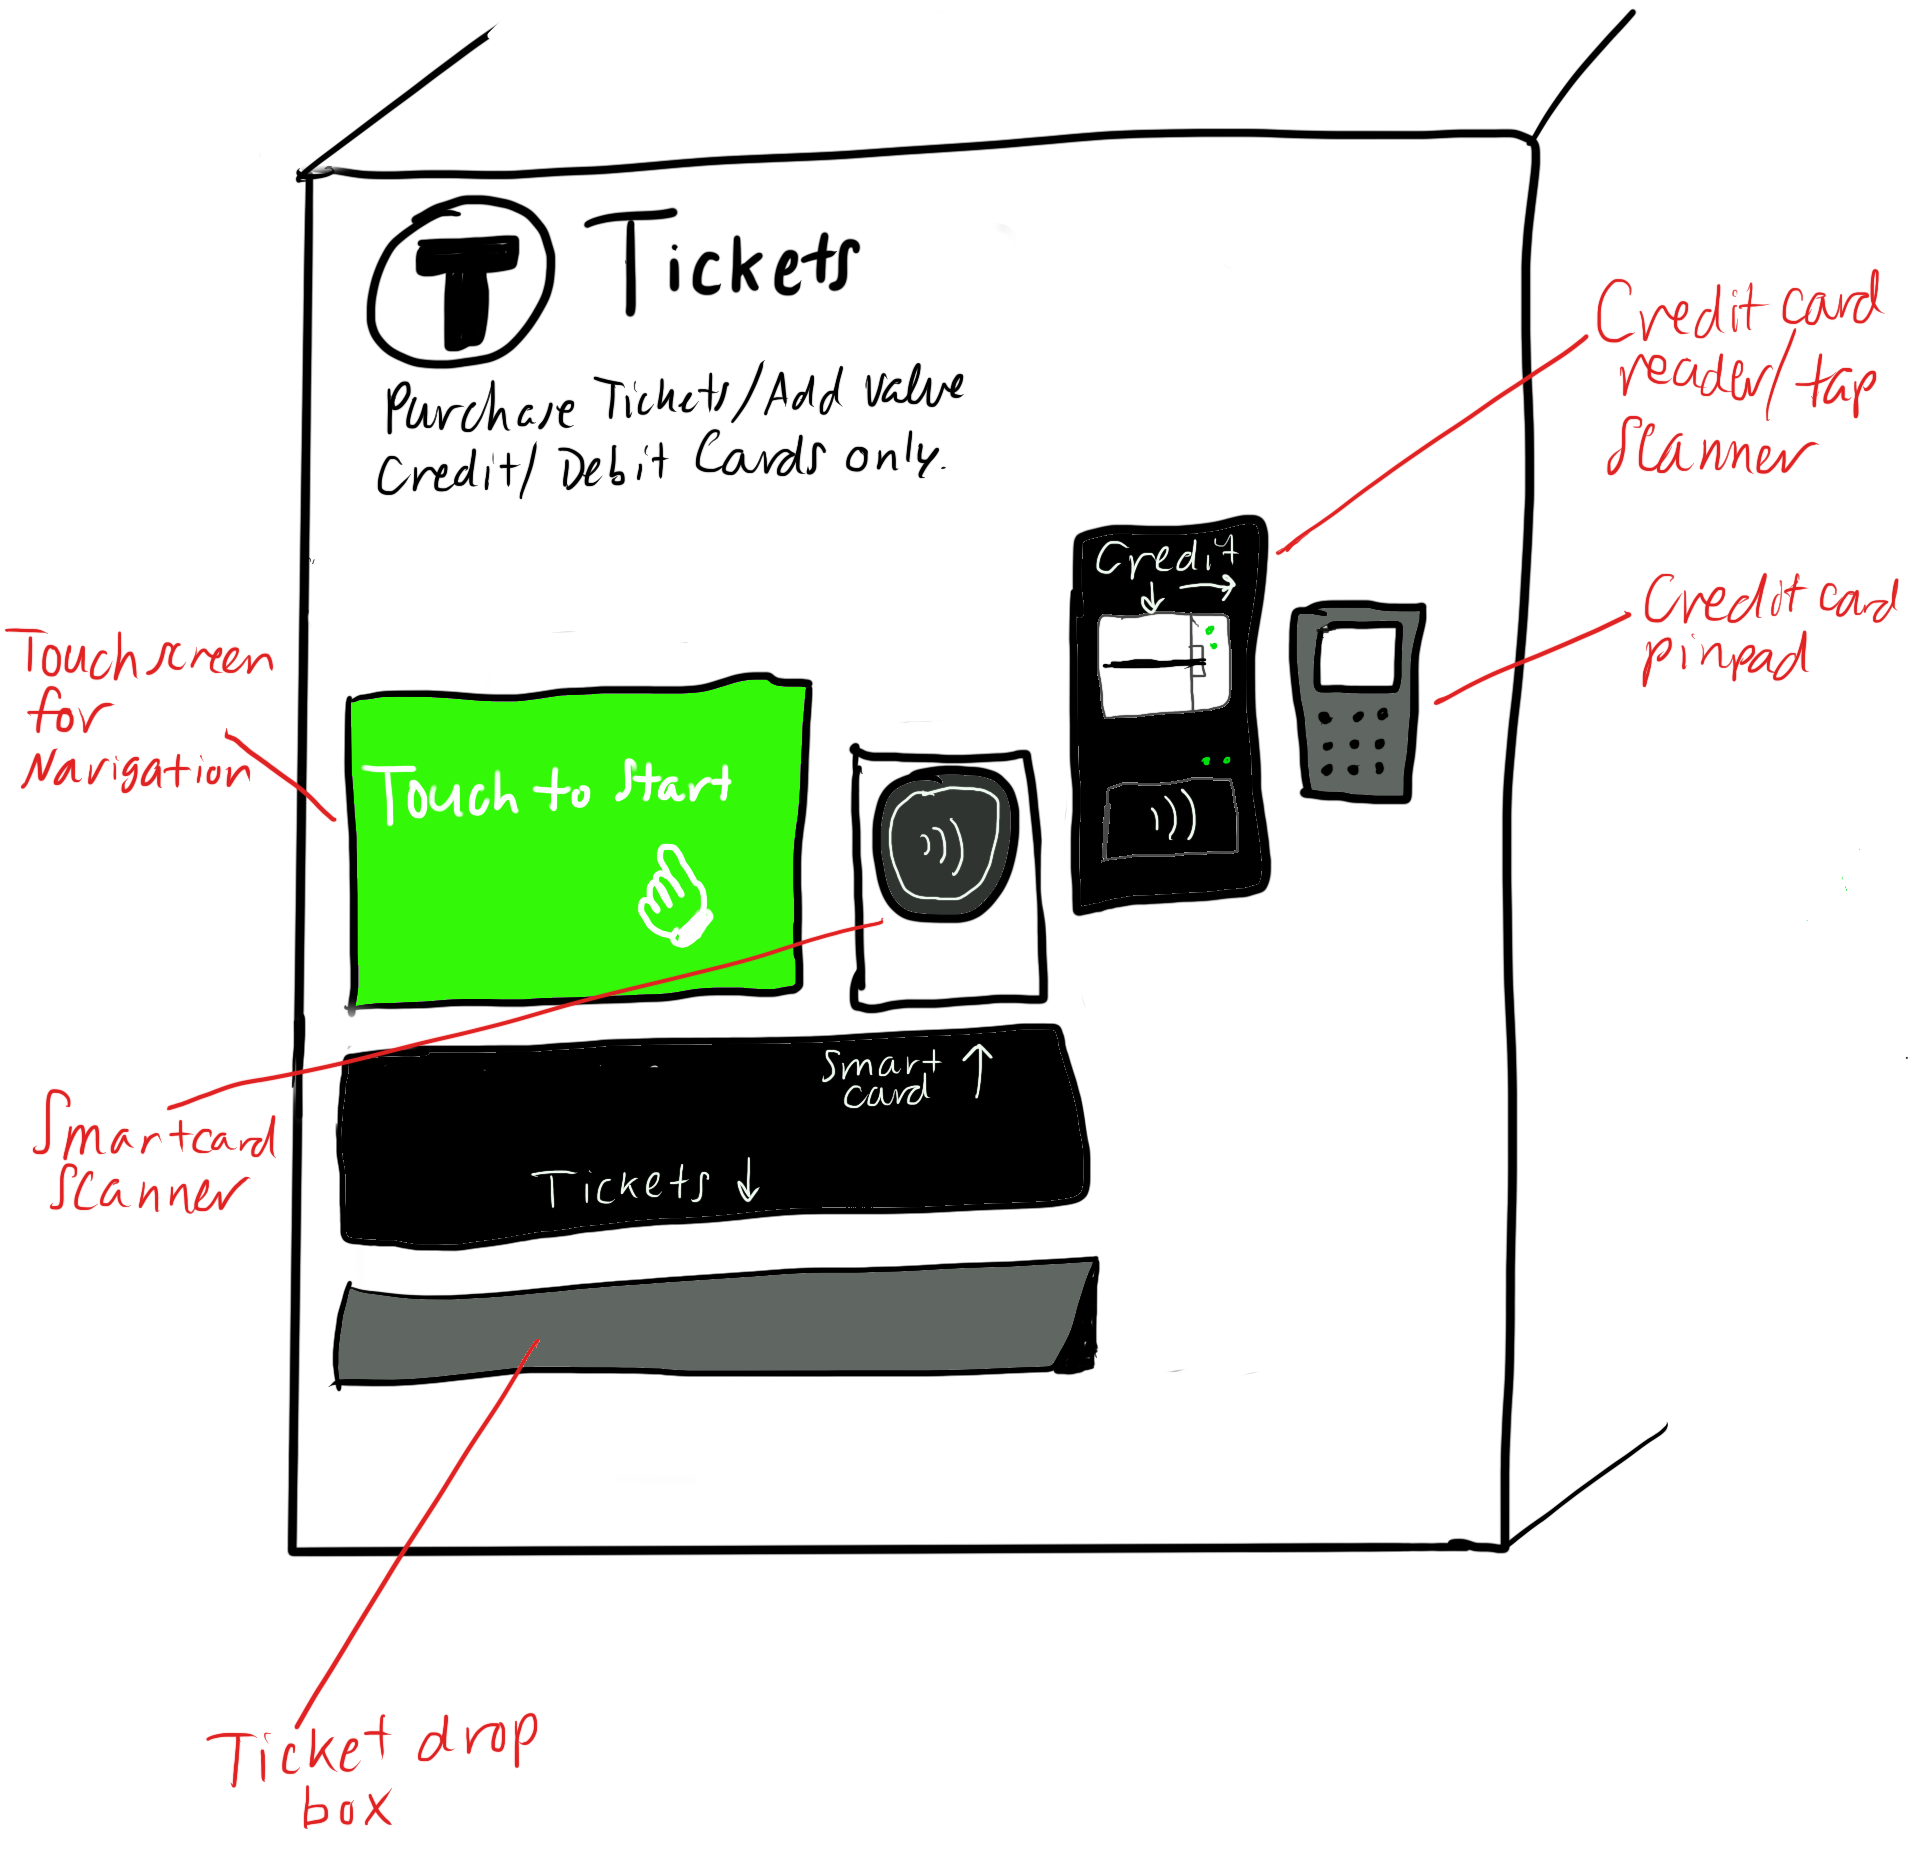 T Tickets
Purchase Tickets/Add value
Credit/Debit Cards only.
Credit card
reader/tap
scanner
Credit
Credit card
pinpad
Touch screen
for
Navigation
Touch to Start
Smart
card
Tickets
Smartcard
scanner
Ticket drop
box